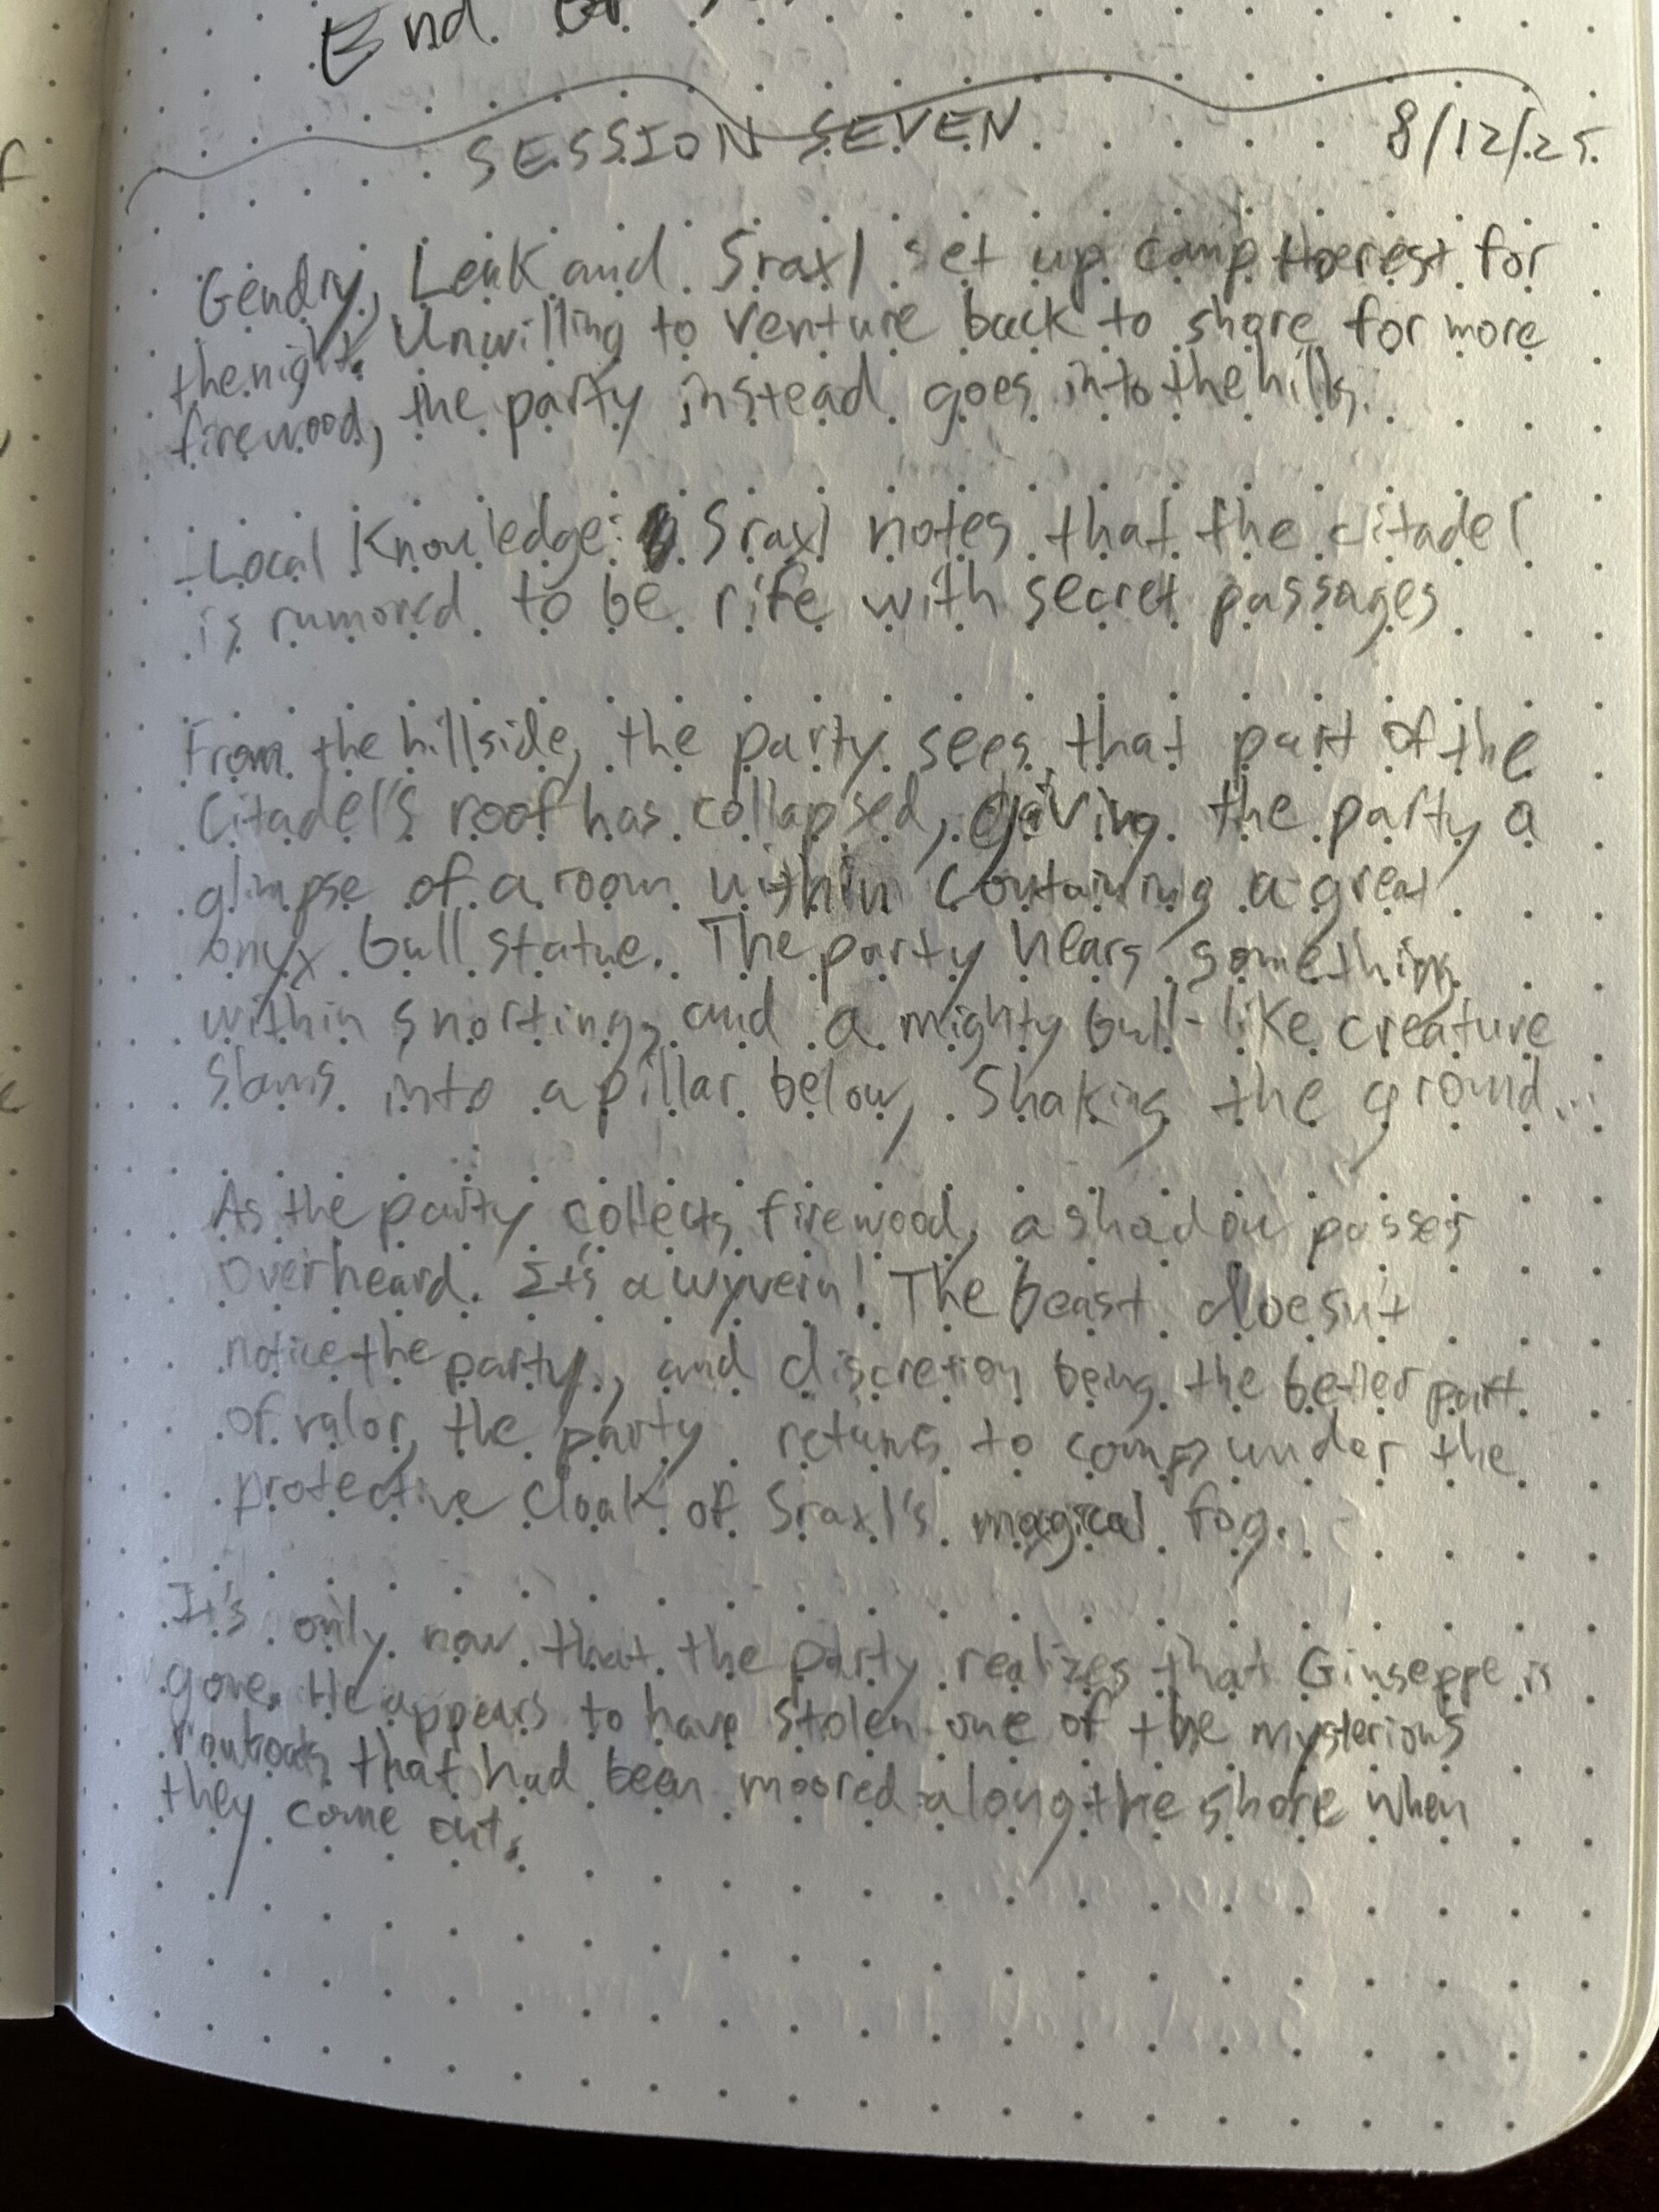 End of
SESSION SEVEN 8/12/25
Gendry, Leak and Sraxl set up camp to rest for
the night. Unwilling to venture back to shore for more
firewood, the party instead goes into the hills.
- Local Knowledge: Sraxl notes that the citadel
is rumored to be rife with secret passages
From the hillside, the party sees that part of the
Citadel's roof has collapsed, giving the party a
glimpse of a room within containing a great
onyx bull statue. The party hears something
within snorting, and a mighty bull-like creature
slams into a pillar below, shaking the ground...
As the party collects firewood, a shadow passes
overheard. It's a wyvern! The beast doesn't
notice the party, and discretion being the better part
of valor, the party returns to camp under the
protective cloak of Sraxl's magical fog.
It's only now that the party realizes that Giuseppe is
gone. He appears to have stolen one of the mysterious
rowboats that had been moored along the shore when
they came out.